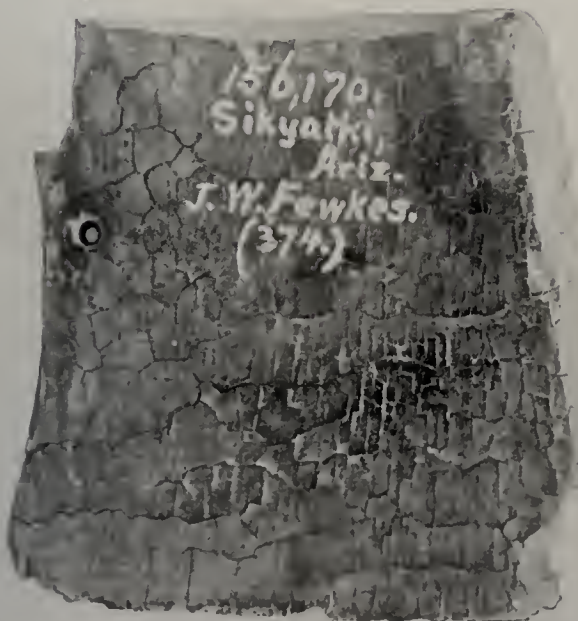 156,170.
Sikyatki,
Ariz.
J. W. Fewkes.
(374.)